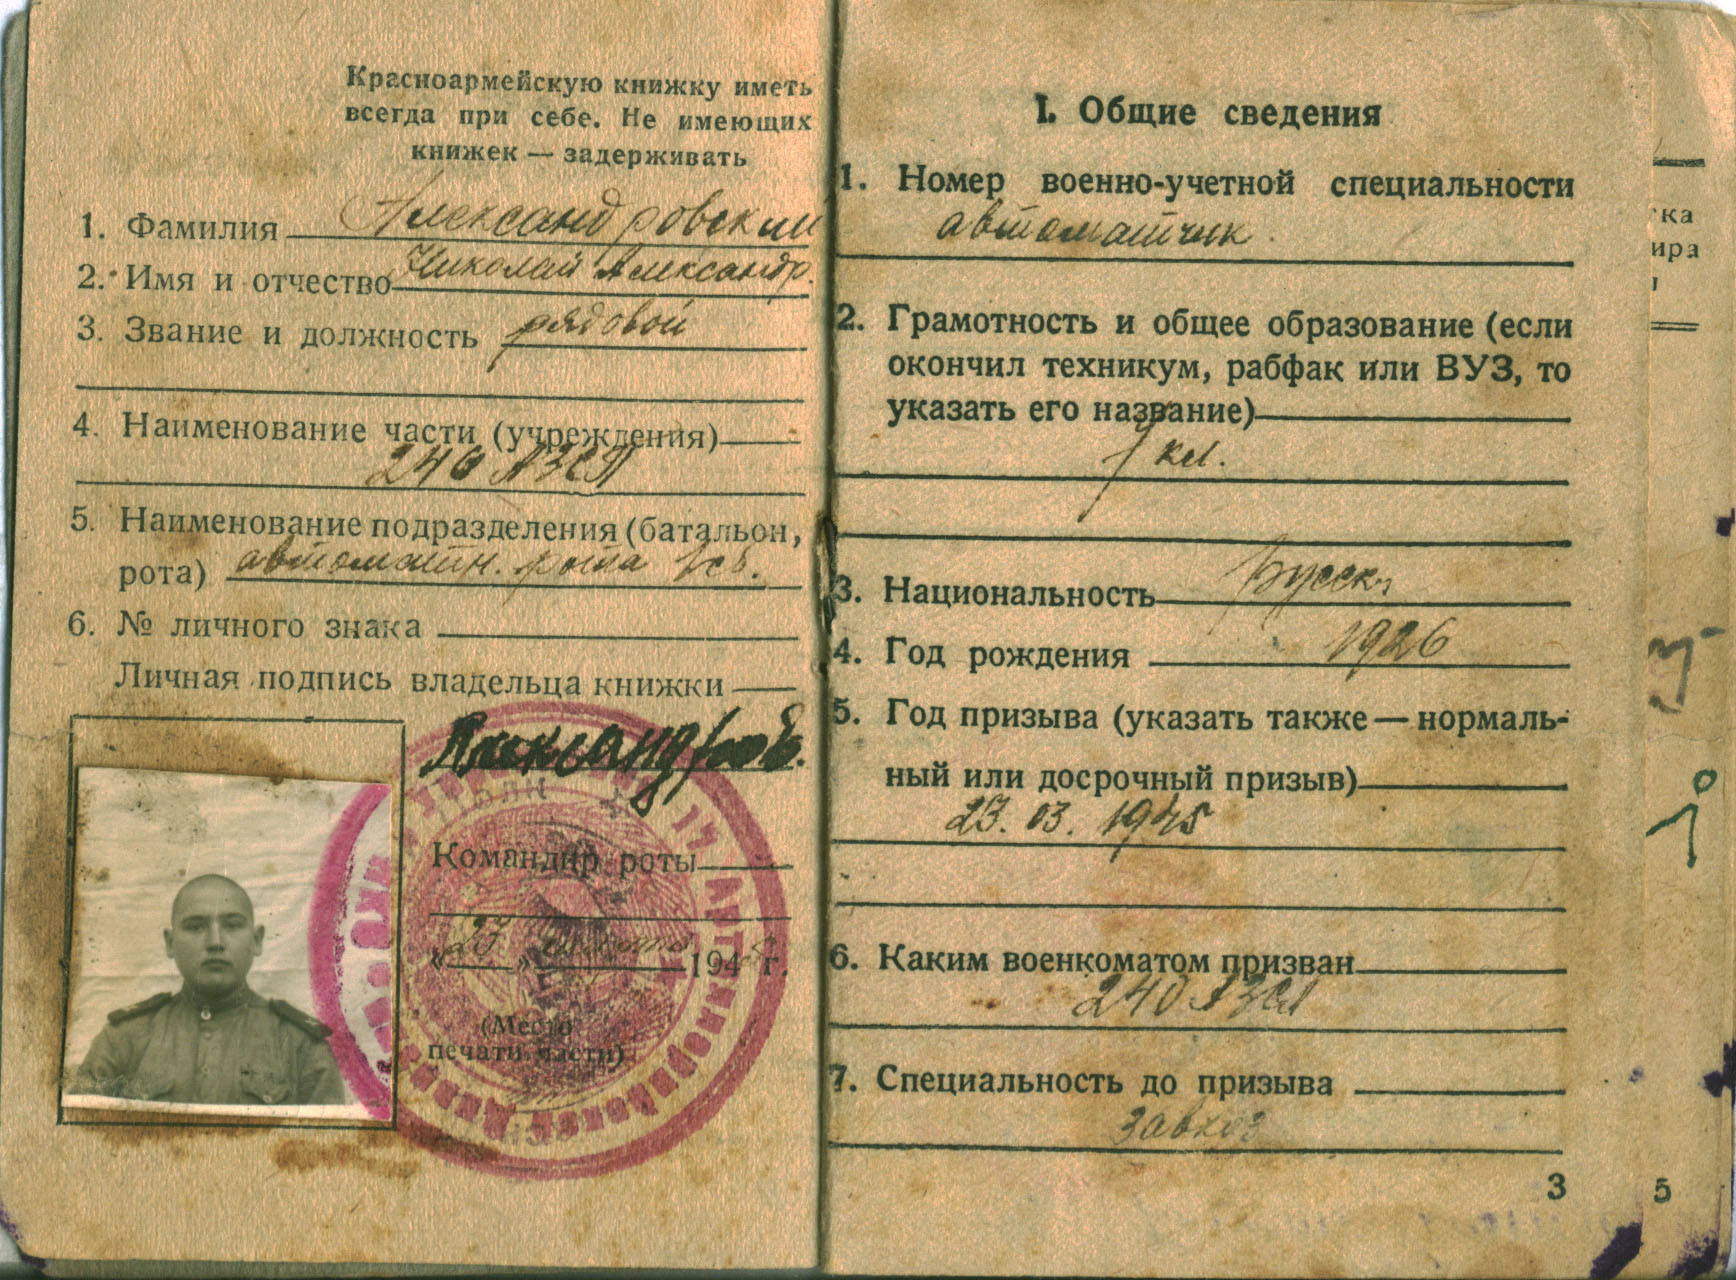 Красноармейскую книжку иметь
всегда при себе. Не имеющих
книжек — задерживать
1. Фамилия Александровский
2. Имя и отчество Николай Александр.
3. Звание и должность рядовой
4. Наименование части (учреждения)
240 АЗСП
5. Наименование подразделения (батальон,
рота) автоматн. рота
6. № личного знака
Личная подпись владельца книжки
Командир роты
«27» марта 1945 г.
(Место
печати части)
I. Общие сведения
1. Номер военно-учетной специальности
автоматчик
2. Грамотность и общее образование (если
окончил техникум, рабфак или ВУЗ, то
указать его название)
кл.
3. Национальность
4. Год рождения 1926
5. Год призыва (указать также — нормаль-
ный или досрочный призыв)
03. 1945
6. Каким военкоматом призван
240 АЗСП
7. Специальность до призыва
завхоз
3
тка
ира
5